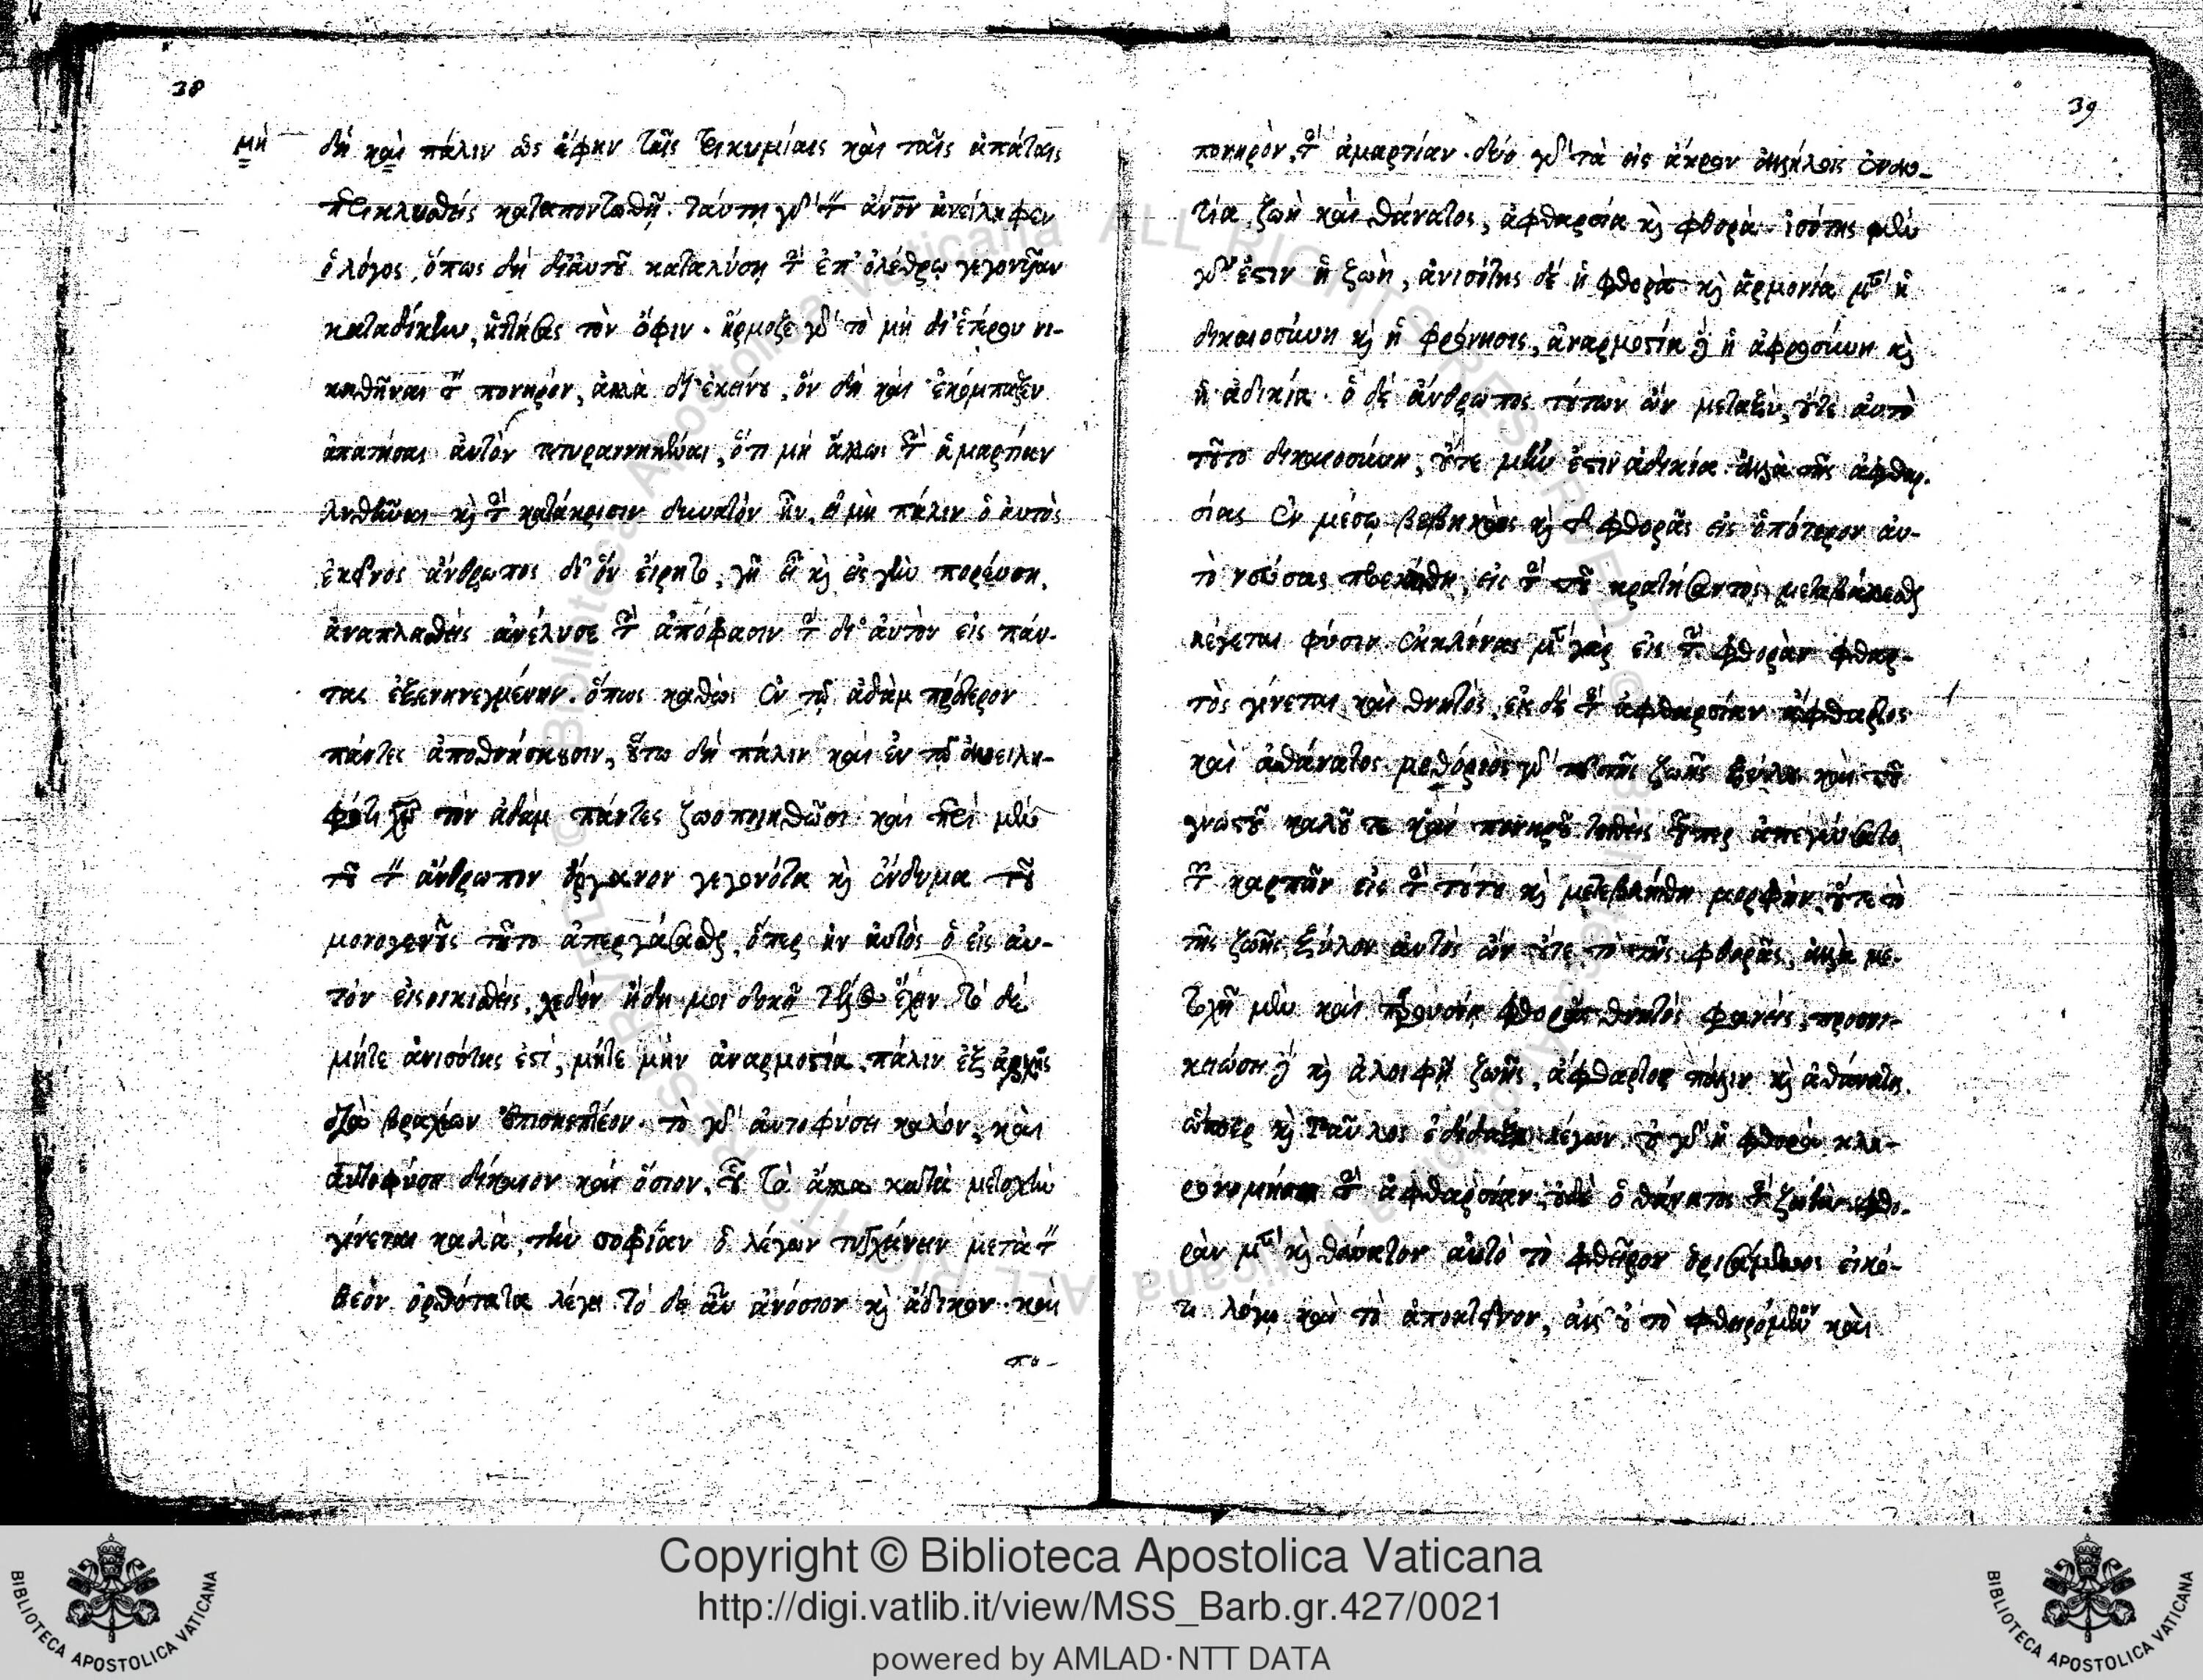 38
μὴ δὴ καὶ πάλιν ὡς ἔφην ταῖς τρικυμίαις καὶ ταῖς ἀπάταις
περικλυσθεὶς καταποντωθῇ. ταύτῃ γὰρ τὸν ἄνον ἀνείληφεν
ὁ λόγος, ὅπως δὴ δι' αὐτοῦ καταλύσῃ τὴν ἐπ' ὀλέθρῳ γεγονυῖαν
καταδίκην, ἡττήσας τὸν ὄφιν. ἥρμοζε γὰρ τὸ μὴ δι' ἑτέρου νι-
κηθῆναι τὸν πονηρὸν, ἀλλὰ δι' ἐκείνου, ὃν δὴ καὶ ἐκόμπαζεν
ἀπατήσας αὐτὸν τετυραννηκέναι, ὅτι μὴ ἄλλως τὴν ἁμαρτίαν
λυθῆναι καὶ τὴν κατάκρισιν δυνατὸν ἦν, εἰ μὴ πάλιν ὁ αὐτὸς
ἐκεῖνος ἄνθρωπος δι' ὃν εἴρητο, γῆ εἶ καὶ εἰς γῆν πορεύσῃ,
ἀναπλασθεὶς ἀνέλυσε τὴν ἀπόφασιν τὴν δι' αὐτὸν εἰς πάν-
τας ἐξενηνεγμένην. ὅπως καθὼς ἐν τῷ ἀδὰμ πρότερον
πάντες ἀποθνήσκουσιν, οὕτω δὴ πάλιν καὶ ἐν τῷ ἀνειλη-
φότι χῷ τὸν ἀδὰμ πάντες ζωοποιηθῶσι καὶ περὶ μὲν
τοῦ τὸν ἄνθρωπον ὄργανον γεγονότα καὶ ἔνδυμα τοῦ
μονογενοῦς τοῦτο ἀπεργάσασθαι, ὅπερ ἦν αὐτὸς ὁ εἰς αὐ-
τὸν εἰσοικισθείς, σχεδὸν ἤδη μοι δοκεῖ ἔχειν τὸ δὲ
μήτε ἀνισότης ἐστί, μήτε μὴν ἀναρμοστία, πάλιν ἐξ ἀρχῆς
διὰ βραχέων ἐπισκεπτέον. τὸ γὰρ αὐτοφύσει καλόν, καὶ
αὐτοφύσει δίκαιον καὶ ὅσιον, οὗ τὰ ἄλλα κατὰ μετοχὴν
γίνεται καλὰ, τὴν σοφίαν ὁ λέγων τυγχάνειν μετὰ τὸν
θεὸν ὀρθότατα λέγει τὸ δὲ αὖ ἀνόσιον καὶ ἄδικον καὶ
πο-
39
πονηρὸν, τὴν ἁμαρτίαν. δύο γὰρ τὰ εἰς ἄκρον ἀλλήλοις ἐναν-
τία, ζωὴ καὶ θάνατος, ἀφθαρσία καὶ φθορὰ. ἰσότης μὲν
γὰρ ἔστιν ἡ ζωὴ, ἀνισότης δὲ ἡ φθορὰ καὶ ἁρμονία μὲν ἡ
δικαιοσύνη καὶ ἡ φρόνησις, ἀναρμοστία δὲ ἡ ἀφροσύνη καὶ
ἡ ἀδικία. ὁ δὲ ἄνθρωπος τούτων ὢν μεταξὺ, οὔτε αὐτὸ
τοῦτο δικαιοσύνη, οὔτε μὴν ἐστιν ἀδικία. ἀλλὰ τῆς ἀφθαρ-
σίας ἐν μέσῳ βεβηκὼς καὶ τῆς φθορᾶς εἰς ὁπότερον αὐ-
τὸ νεύσας εἰς τὴν τοῦ κρατήσαντος μεταβάλεσθαι
λέγεται φύσιν. ἐκκλίνας μὲν γὰρ εἰς τὴν φθορὰν φθαρ-
τὸς γίνεται καὶ θνητός, εἰς δὲ τὴν ἀφθαρσίαν ἄφθαρτος
καὶ ἀθάνατος μεθόριος γὰρ τοῦ τῆς ζωῆς ξύλου καὶ τοῦ
γνωστοῦ καλοῦ τε καὶ πονηροῦ τεθεὶς οὗπερ ἀπεγεύσατο
τὸν καρπὸν εἰς τὴν τούτου καὶ μετεβλήθη μορφήν, οὔτε τὸ
τῆς ζωῆς ξύλον αὐτὸς ὢν οὔτε τὸ τῆς φθορᾶς, ἀλλὰ με-
τοχῇ μὲν καὶ παρουσίᾳ φθορᾶς θνητὸς φανείς, προσοι-
κειώσει δὲ καὶ ἀλοιφῇ ζωῆς, ἄφθαρτος πάλιν καὶ ἀθάνατος,
ὥσπερ καὶ Παῦλος ἐδίδαξε λέγων. οὐ γὰρ ἡ φθορὰ κλη-
ρονομήσει τὴν ἀφθαρσίαν, οὐδὲ ὁ θάνατος τὴν ζωὴν φθο-
ρὰν μὲν καὶ θάνατον αὐτὸ τὸ φθεῖρον ὁρισάμενος εἰκό-
τι λόγῳ καὶ τὸ ἀποκτεῖνον, ἀλλ' οὐ τὸ φθειρόμενον καὶ
Copyright © Biblioteca Apostolica Vaticana
http://digi.vatlib.it/view/MSS_Barb.gr.427/0021
powered by AMLAD·NTT DATA
BIBLIOTECA APOSTOLICA VATICANA
BIBLIOTECA APOSTOLICA VATICANA